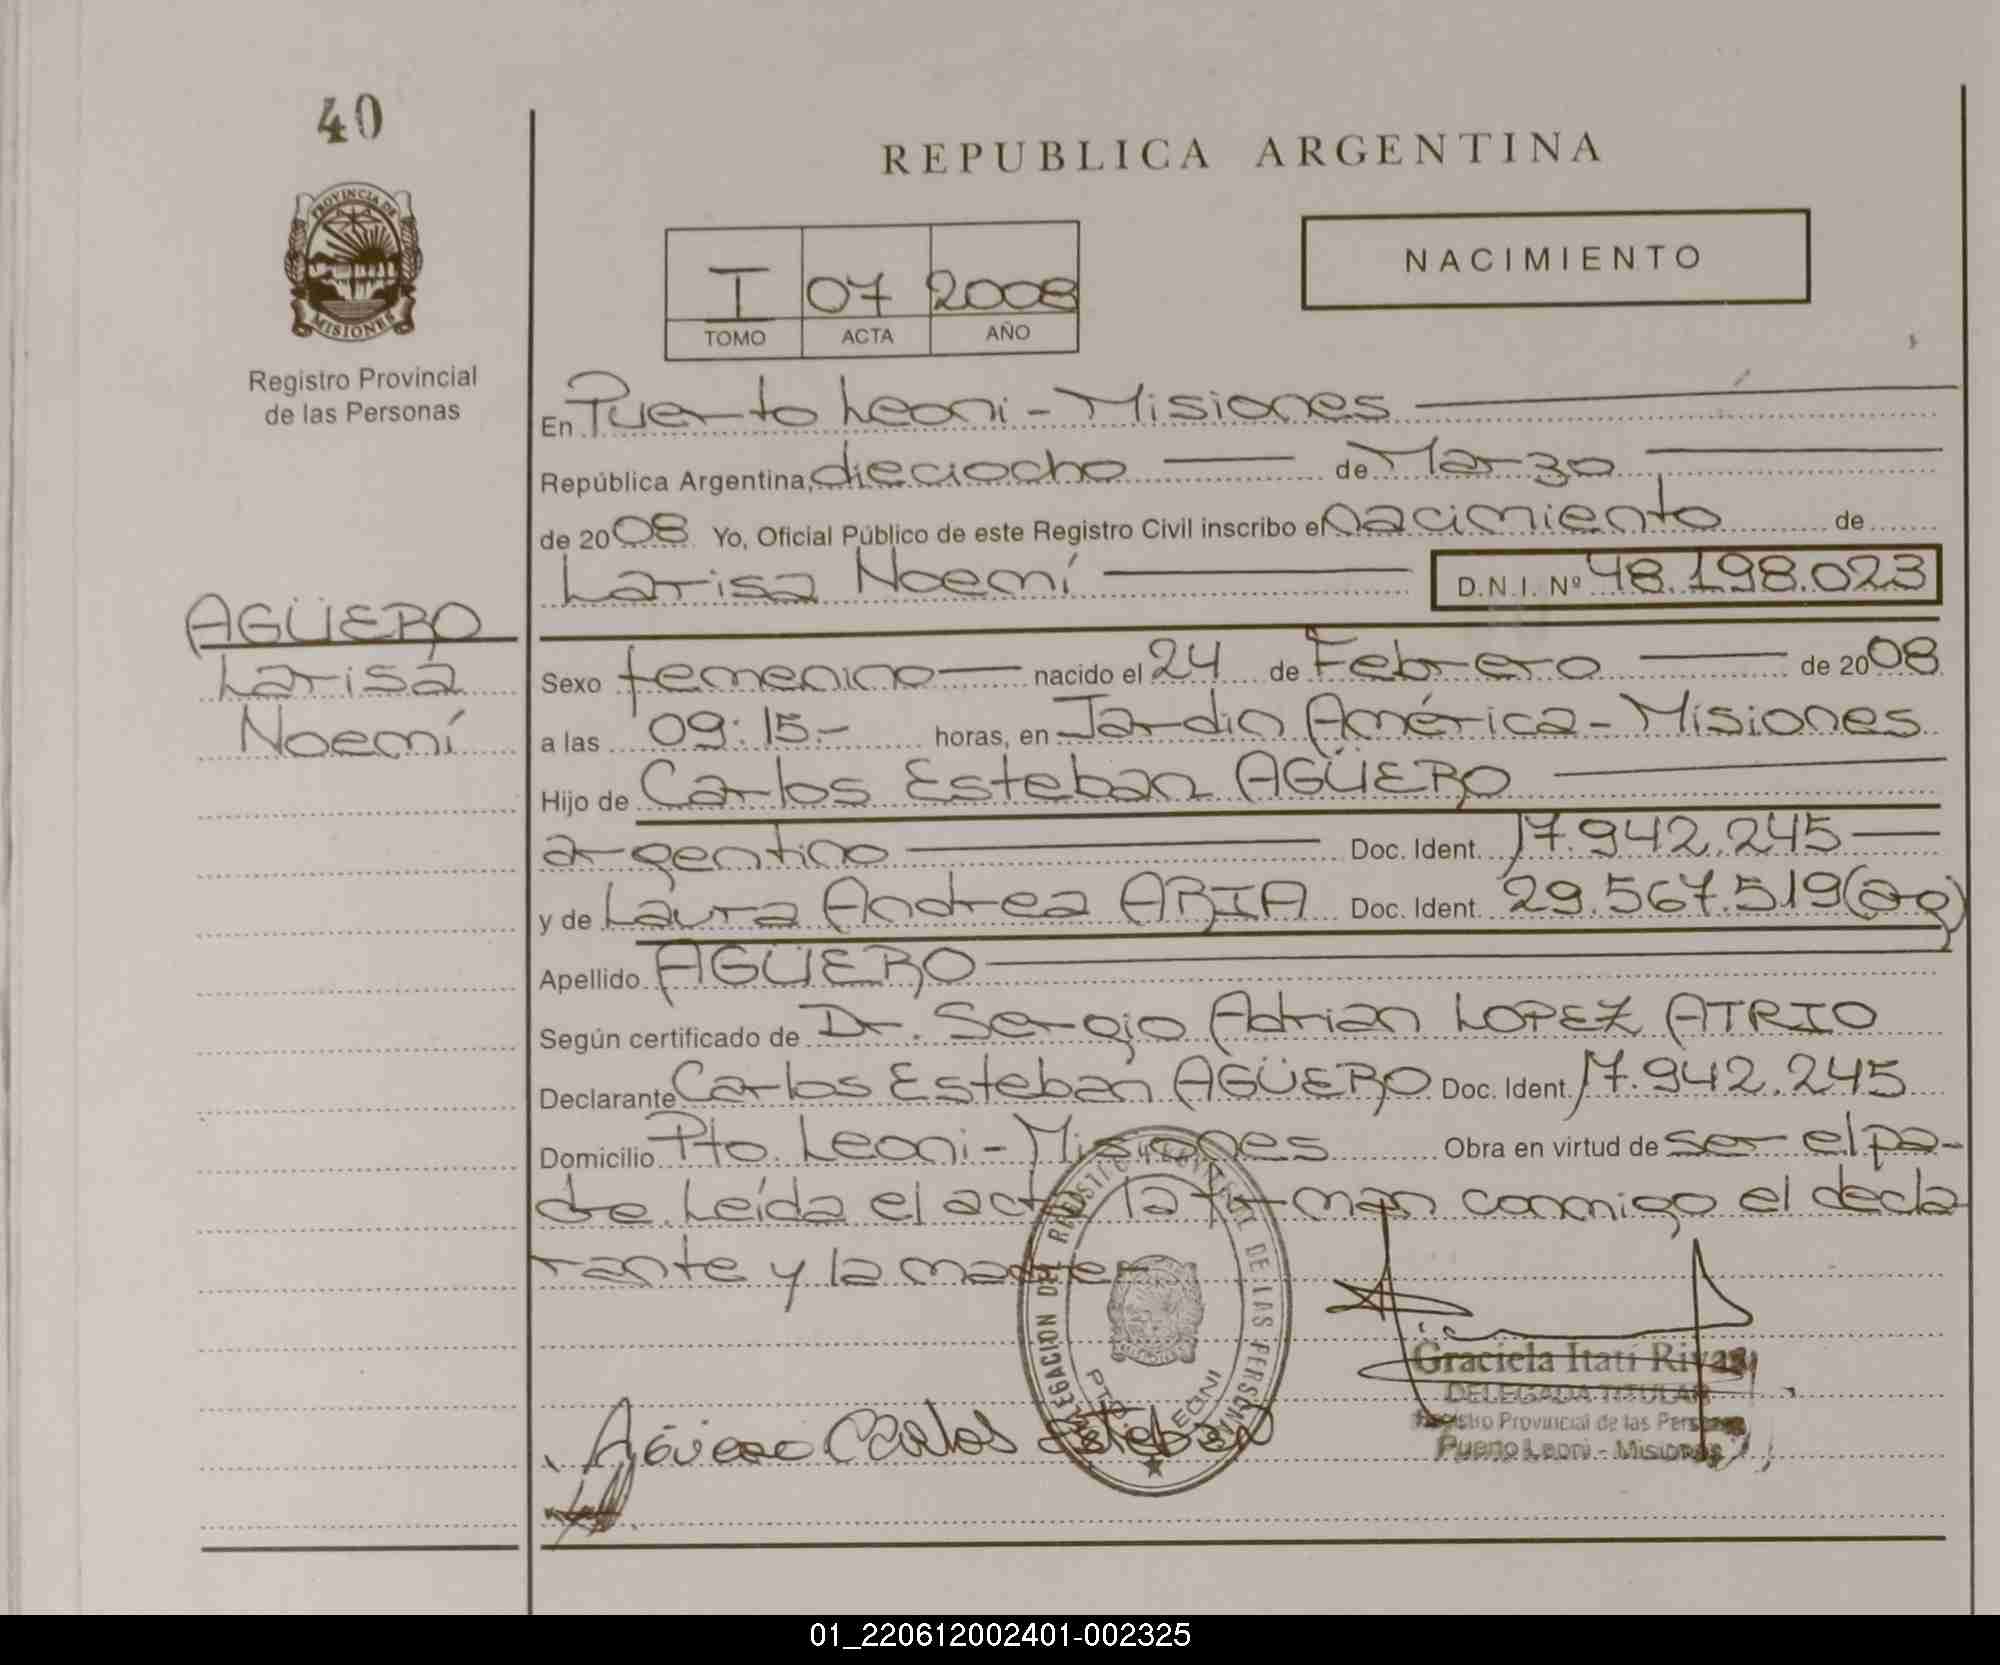 40
REPUBLICA ARGENTINA
PROVINCIA DE
MISIONES
Registro Provincial
de las Personas
NACIMIENTO
I 07 2008
TOMO ACTA AÑO
En Puerto Leoni - Misiones
República Argentina, dieciocho de Marzo
de 2008 Yo, Oficial Público de este Registro Civil inscribo el nacimiento de
Larisa Noemí D.N.I. Nº 48.198.023
AGÜERO
Larisa
Noemí
Sexo femenino nacido el 24 de Febrero de 2008
a las 09:15.- horas, en Jardin América - Misiones
Hijo de Carlos Esteban AGÜERO
argentino Doc. Ident. 17.942.245
y de Laura Andrea ARIA Doc. Ident. 29.567.519 (arg)
Apellido AGÜERO
Según certificado de Dr. Sergio Adrian LOPEZ ATRIO
Declarante Carlos Esteban AGÜERO Doc. Ident. 17.942.245
Domicilio Pto. Leoni - Misiones Obra en virtud de ser el pa-
dre. Leída el acta la firman conmigo el decla
rante y la madre
DELEGACION DEL REGISTRO DE LAS PERSONAS
PTO LEONI
Graciela Itatí Rivas
DELEGADA TITULAR
Registro Provincial de las Personas
Puerto Leoni - Misiones
Agüero Carlos Esteban
01_220612002401-002325